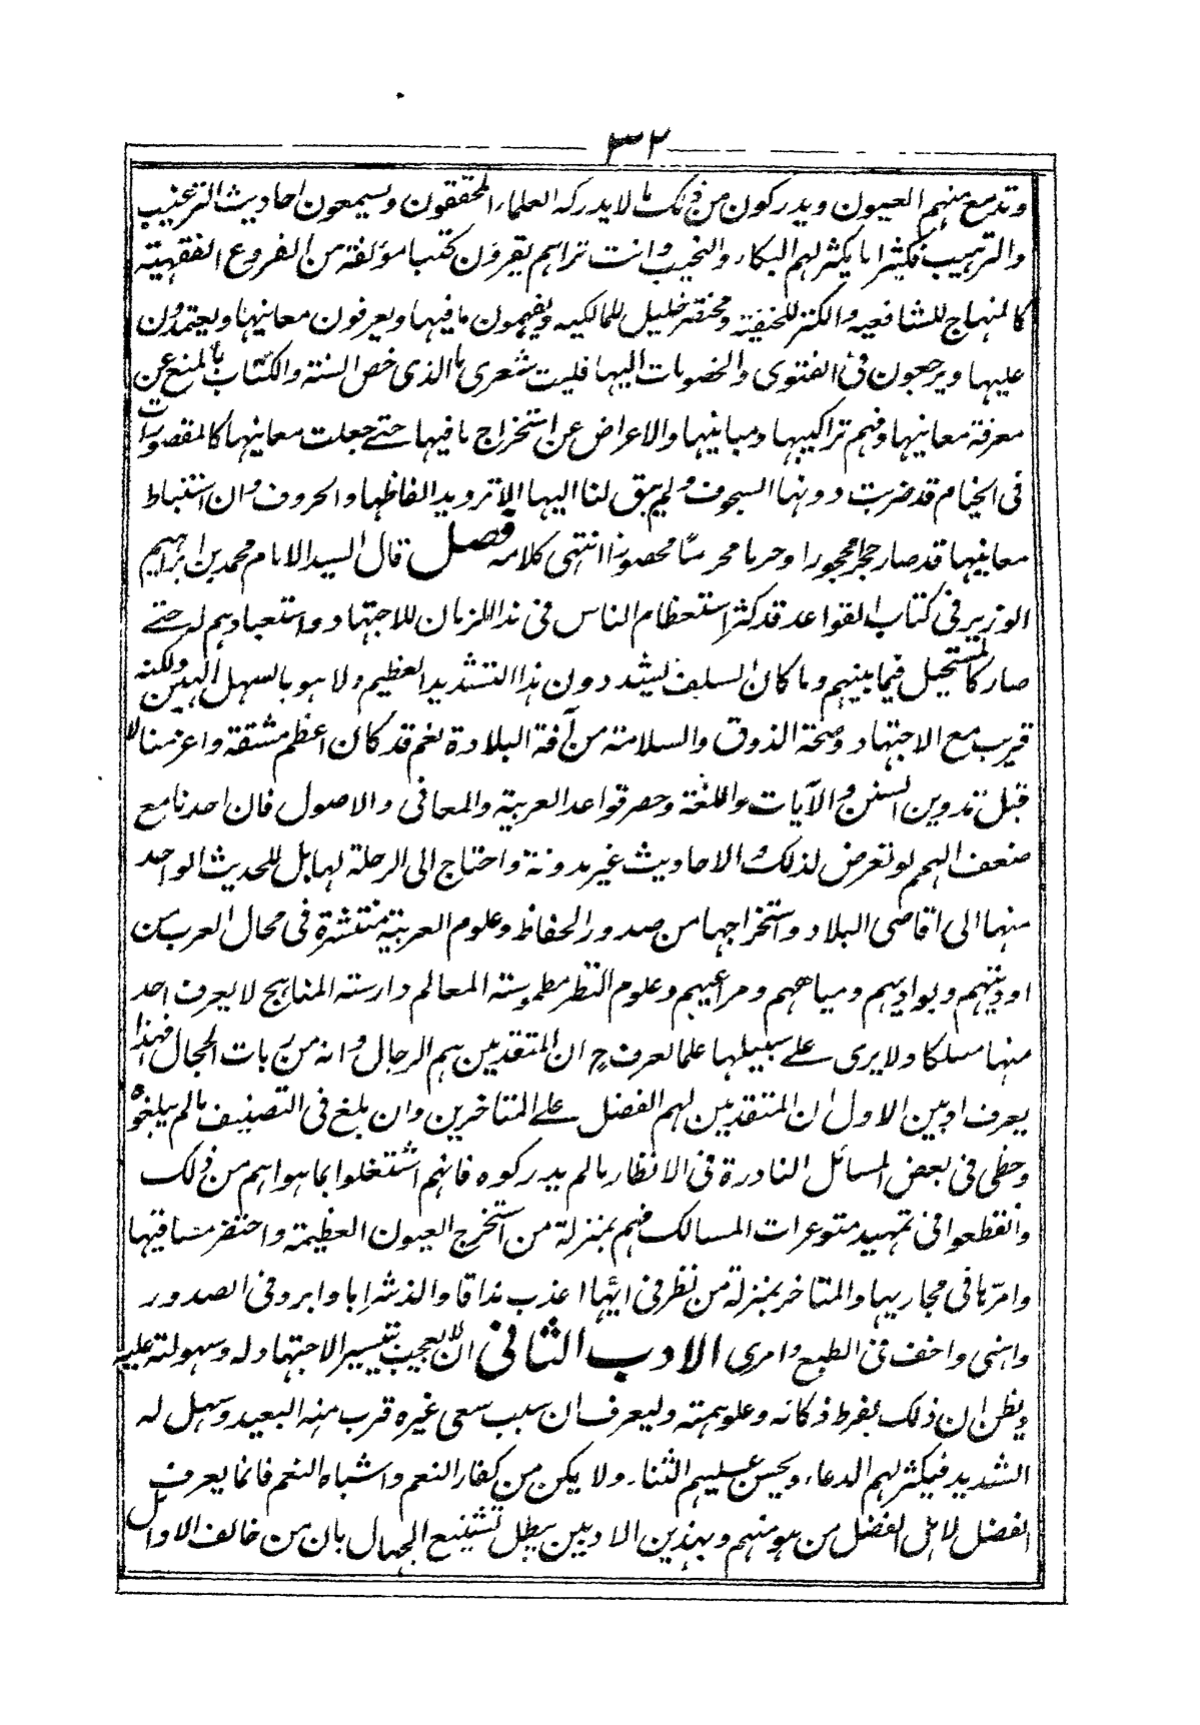 ٣٢
وتدمع منهم العيون ويدركون من ذلك ما لا يدركه العلماء المحققون ويسمعون احاديث الترغيب
والترهيب فكثيرا ما يكثر لهم البكاء والنحيب وانت تراهم يقرؤن كتبا مؤلفة من الفروع الفقهية
كالمنهاج للشافعيه والكنز للحنفية ومختصر خليل للمالكيه ويفهمون ما فيها ويعرفون معانيها ويعتمدون
عليها ويرجعون فى الفتوى والخصومات اليها فليت شعرى ما الذى خص السنة والكتاب بالمنع عن
معرفة معانيها وفهم تراكيبها ومبانيها والاعراض عن استخراج ما فيها حتے جعلت معانيها كالمقصورات
فى الخيام قد ضربت دونها السجوف ولم يبق لنا اليها الا ترديد الفاظها والحروف وان استنباط
معانيها قد صار حجرا محجورا وحرما محرما محصورا انتهى كلامه فصل قال السيد الامام محمد بن ابراهيم
الوزير فى كتاب القواعد قد كثر استعظام الناس فى هذا الزمان للاجتهاد واستبعادهم له حتے
صار كالمستحيل فيما بينهم وما كان السلف يشددون هذا التشديد العظيم ولا هو بالسهل الهين ولكنه
قريب مع الاجتهاد وصحة الذوق والسلامة من آفة البلادة نعم قد كان اعظم مشقة واعز منالا
قبل تدوين السنن والآيات واللغة وحصر قواعد العربية والمعانى والاصول فان احدنا مع
ضعف الهمم لو تعرض لذلك والاحاديث غير مدونة واحتاج الى الرحلة لها بل للحديث الواحد
منها الى اقاصى البلاد واستخراجها من صدور الحفاظ وعلوم العربية منتشرة فى محال العرب من
اوديتهم وبواديهم ومياههم ومراعيهم وعلوم النظر مطموسة المعالم دارسة المناهج لا يعرف احد
منها مسلكا ولا يرى علے سبيلها علما لعرف ح ان المتقدمين هم الرجال وانه من ربات الحجال فهذا
يعرف ادبين الاول ان المتقدمين لهم الفضل علے المتاخرين وان بلغ فى التصنيف ما لم يبلغوه
وحظى فى بعض المسائل النادرة فى الانظار ما لم يدركوه فانهم اشتغلوا بما هو اهم من ذلك
وانقطعوا فى تمهيد متوعرات المسالك فهم بمنزلة من استخرج العيون العظيمة واحتفر مساقيها
وامرّها فى مجاريها والمتاخر بمنزلة من نظر فى ايّها اعذب مذاقا والذ شرابا وابرد فى الصدور
واهنى واخف فى الطبع وامرى الادب الثانى ان لا يعجب بتيسير الاجتهاد له وسهولته عليه
ويظن ان ذلك بفرط ذكائه وعلو همته وليعرف ان سبب سعى غيره قرب منه البعيد وسهل له
الشديد فيكثر لهم الدعاء ويحسن عليهم الثناء ولا يكن من كفار النعم واشباه النعم فانما يعرف
الفضل لاهل الفضل من هو منهم وبهذين الادبين يبطل تشنيع الجهال بان من خالف الاوائل